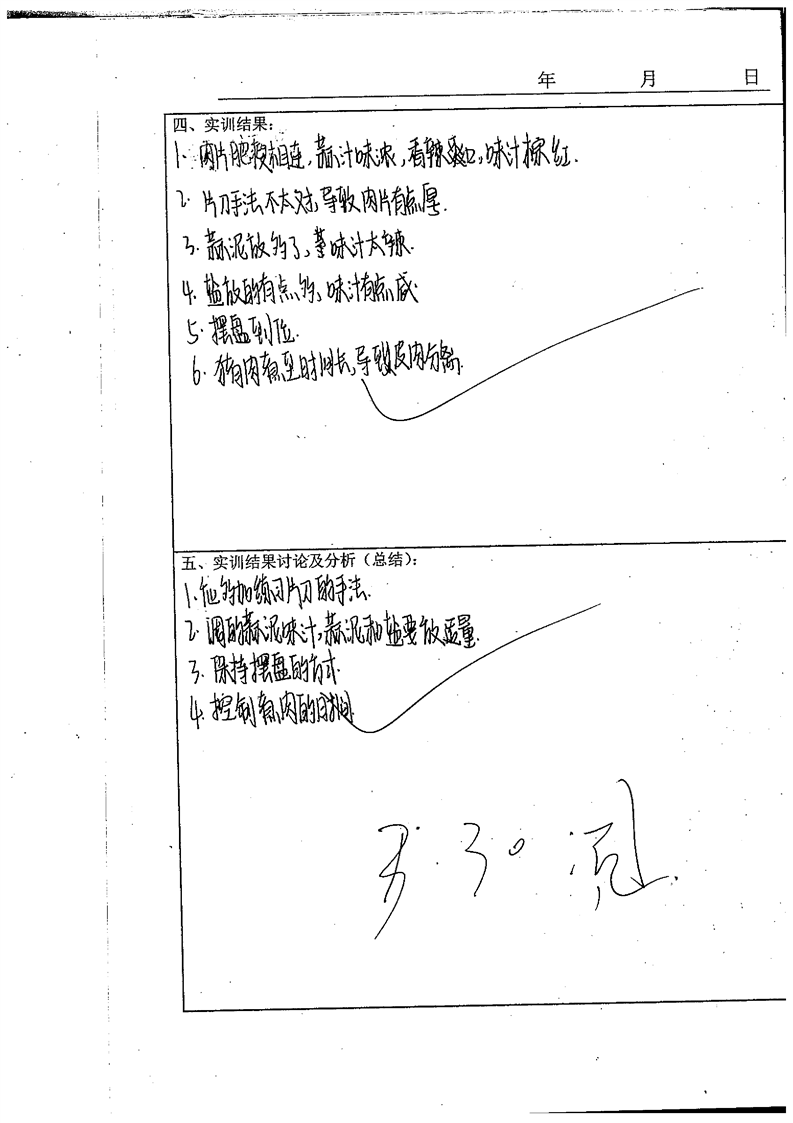 年 月 日
四、实训结果：
1. 肉片肥瘦相连，蒜汁味浓，香辣爽口，味汁棕红.
2. 片刀手法不太对，导致肉片有点厚.
3. 蒜泥放多了，味汁太辣.
4. 盐放的有点多，味汁有点咸
5. 摆盘到位.
6. 猪肉煮至时间长，导致皮肉分离.
五、实训结果讨论及分析（总结）：
1. 应多加练习片刀的手法.
2. 调的蒜泥味汁，蒜泥和盐要放适量.
3. 保持摆盘的方式.
4. 控制煮肉的时间.